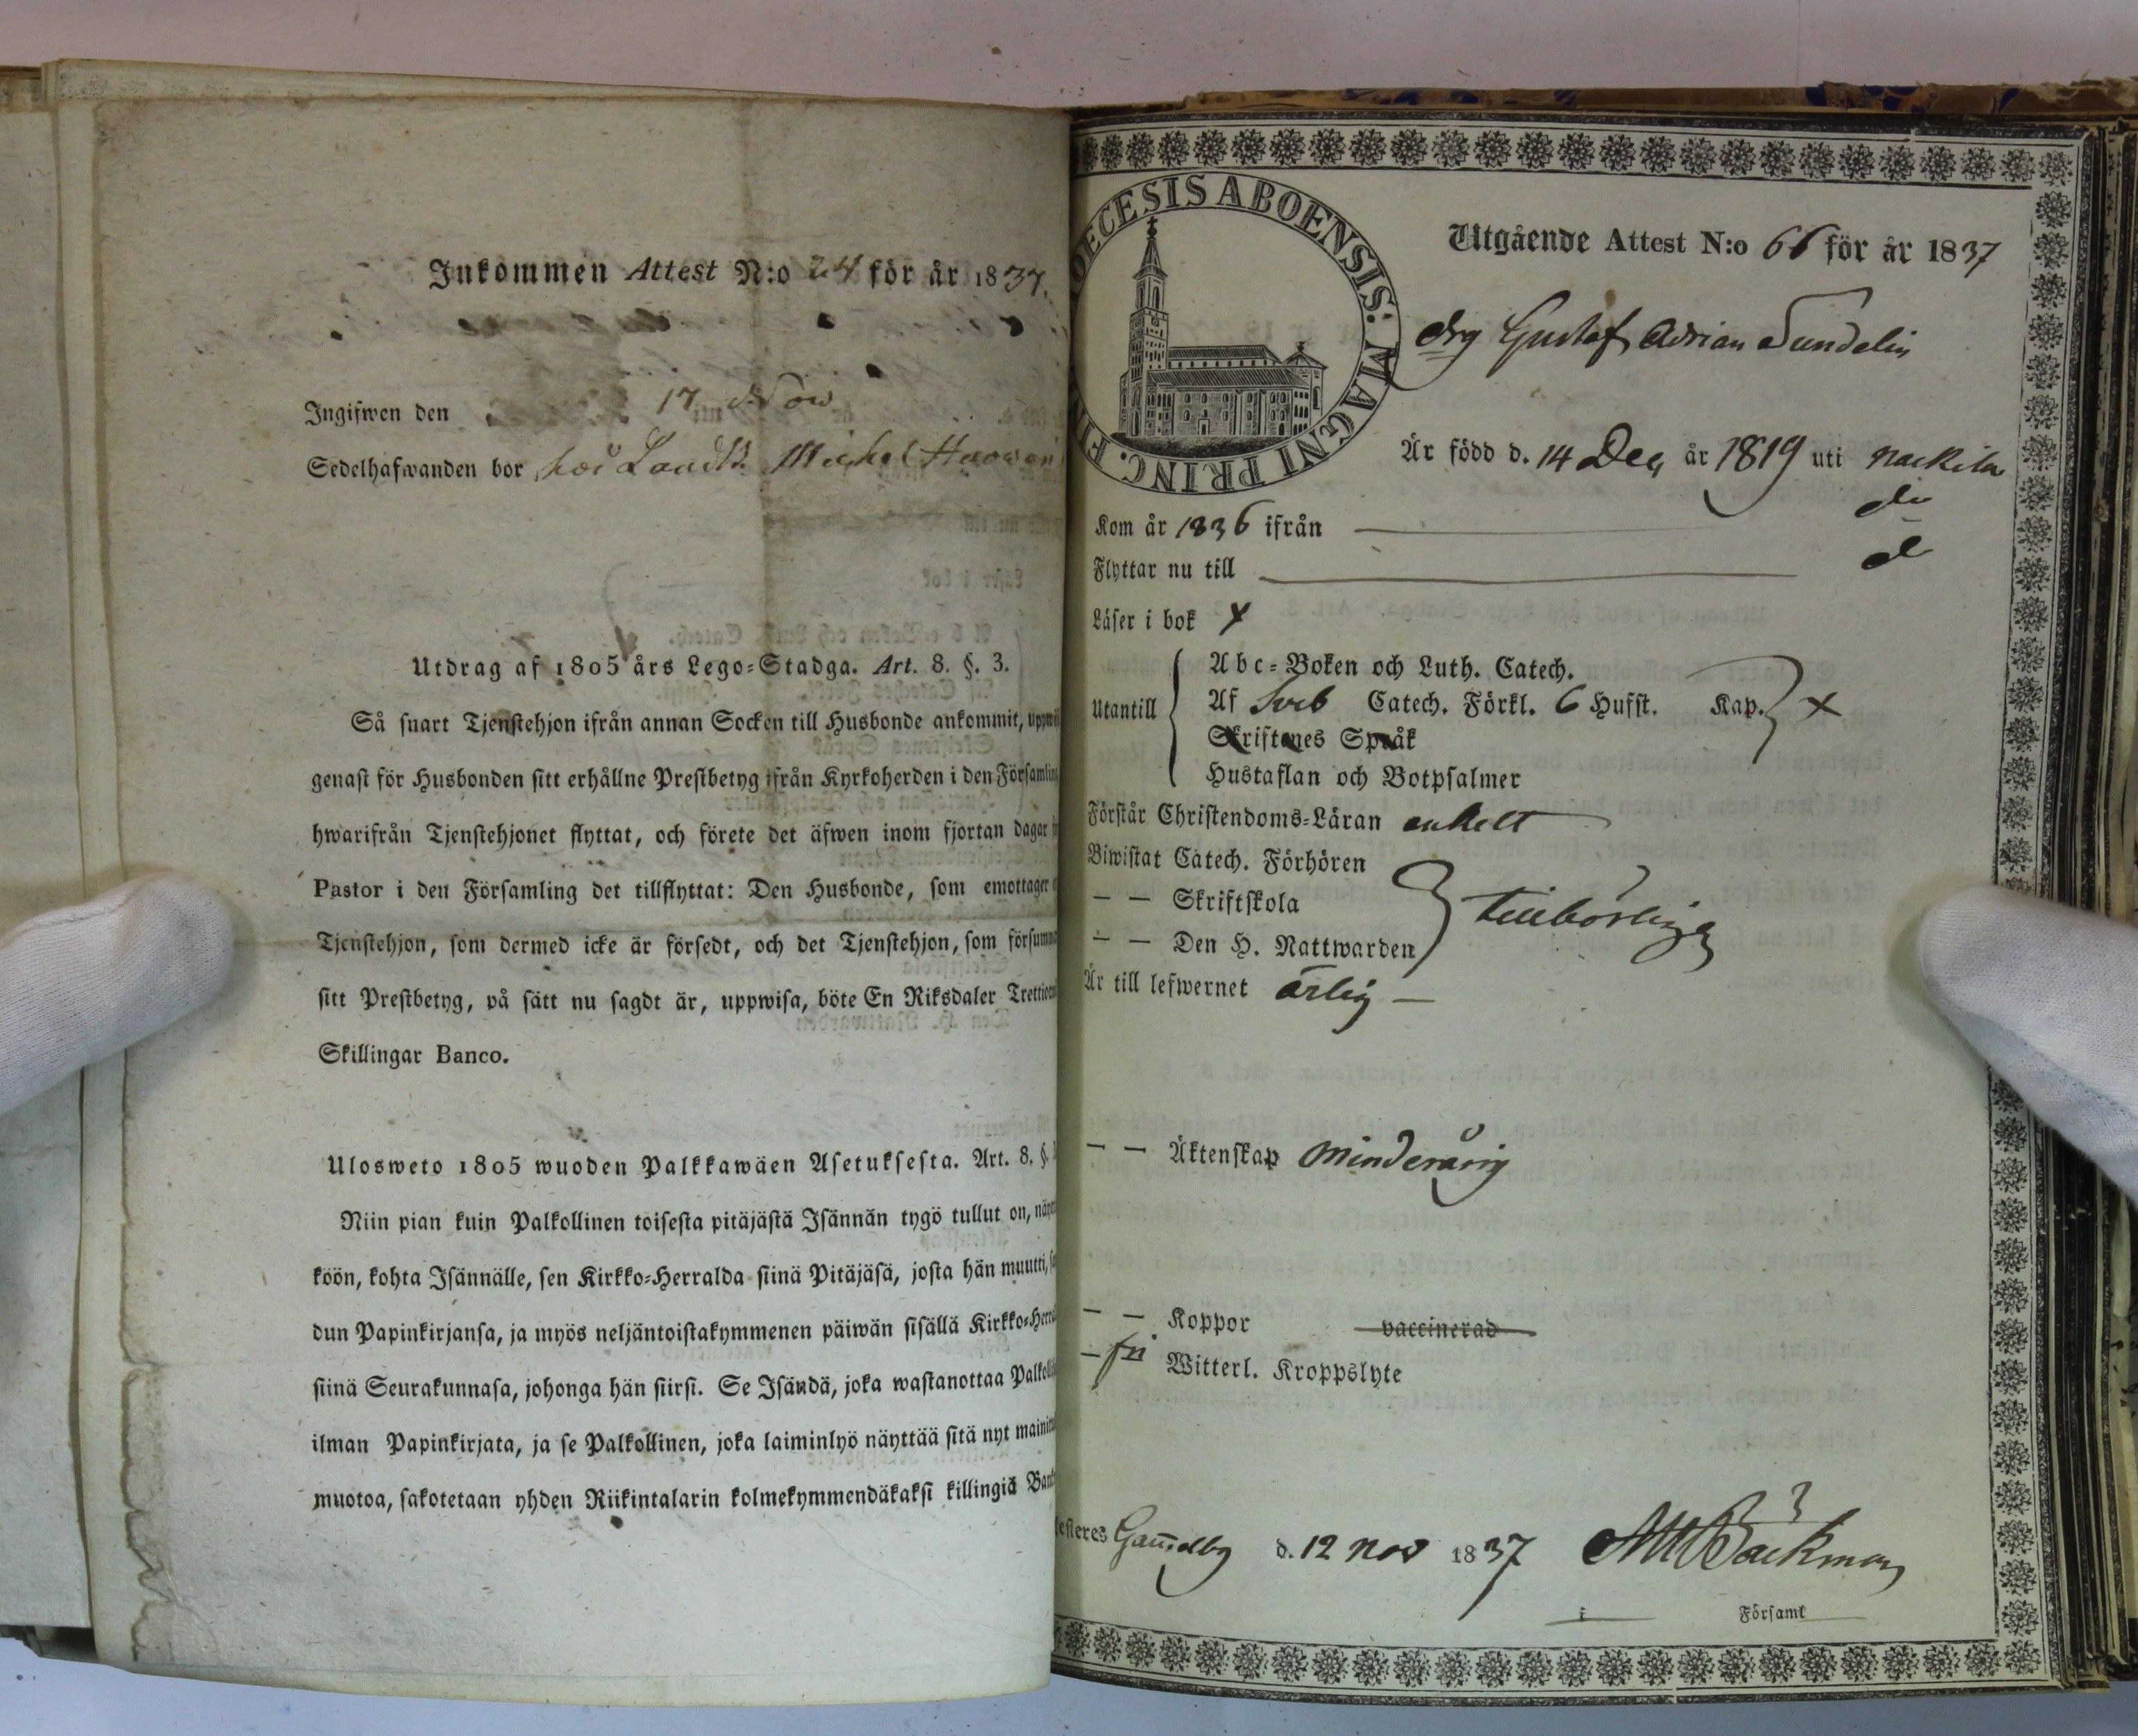 Inkommen Attest N:o 24 för år 1837.
Ingifwen den 17 Nov
Sedelhafwanden bor hos Landtb. Michel
Utdrag af 1805 års Lego-Stadga. Art. 8. §. 3.
Så snart Tjenstehjon ifrån annan Socken till Husbonde ankommit,
genast för Husbonden sitt erhållne Prestbetyg ifrån Kyrkoherden i den Församling
hwarifrån Tjenstehjonet flyttat, och förete det äfwen inom fjortan dagar
Pastor i den Församling det tillflyttat: Den Husbonde, som emottager
Tjenstehjon, som dermed icke är försedt, och det Tjenstehjon, som försumma
sitt Prestbetyg, på sätt nu sagdt är, uppwisa, böte En Riksdaler
Skillingar Banco.
Ulosweto 1805 wuoden Palkkawäen Asetuksesta. Art. 8. §.
Niin pian kuin Palkollinen toisesta pitäjästä Isännän tygö tullut on,
köön, kohta Isännälle, sen Kirkko-Herralda siinä Pitäjäsä, josta hän muutti,
dun Papinkirjansa, ja myös neljäntoistakymmenen päiwän sisällä
siinä Seurakunnasa, johonga hän siirsi. Se Isändä, joka wastanottaa
ilman Papinkirjata, ja se Palkollinen, joka laiminlyö näyttää sitä nyt
muotoa, sakotetaan yhden Riikintalarin kolmekymmendäkaksi killingiä
DECESIS ABOENSIS: MAGNI PRINC. F
Utgående Attest N:o 66 för år 1837
drg Gustaf Adrian Sundelin
Är född d. 14 Dec, år 1819 uti Nackila
Kom år 1836 ifrån do
Flyttar nu till d
Läser i bok x
Utantill
Abc-Boken och Luth. Catech.
Af Sveb Catech. Förkl. 6 Hufst. Kap. x
Skriftenes Språk
Hustaflan och Botpsalmer
Förstår Christendoms-Läran enkelt
Biwistat Catech. Förhören
— — Skriftskola tillbörligen
— — Den H. Nattwarden
Är till lefwernet ärlig —
— — Äktenskap minderårig
— — Koppor vaccinerad
— fri Witterl. Kroppslyte
testeres Gammelby d. 12 Nov 1837 Bäckman
i Församl